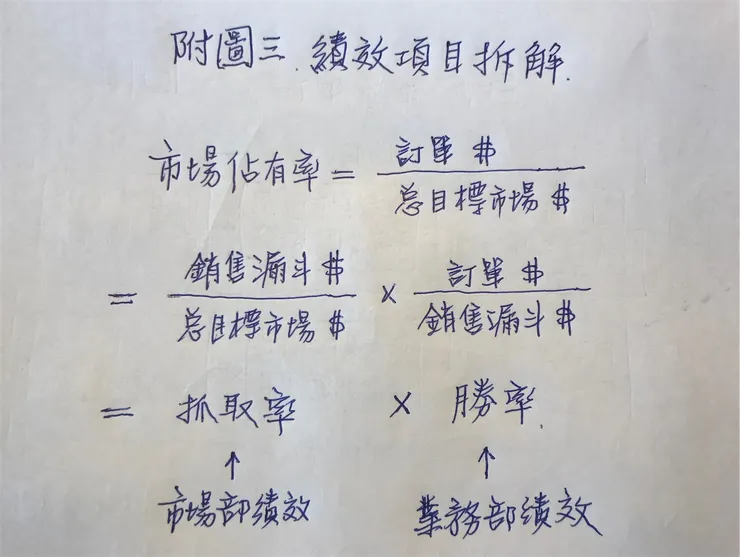 附圖三. 績效項目拆解.
市場佔有率 = 訂單 $ / 总目標市場 $
= 銷售漏斗 $ / 总目標市場 $ × 訂單 $ / 銷售漏斗 $
= 抓取率 × 勝率.
↑ ↑
市場部績效 業務部績效